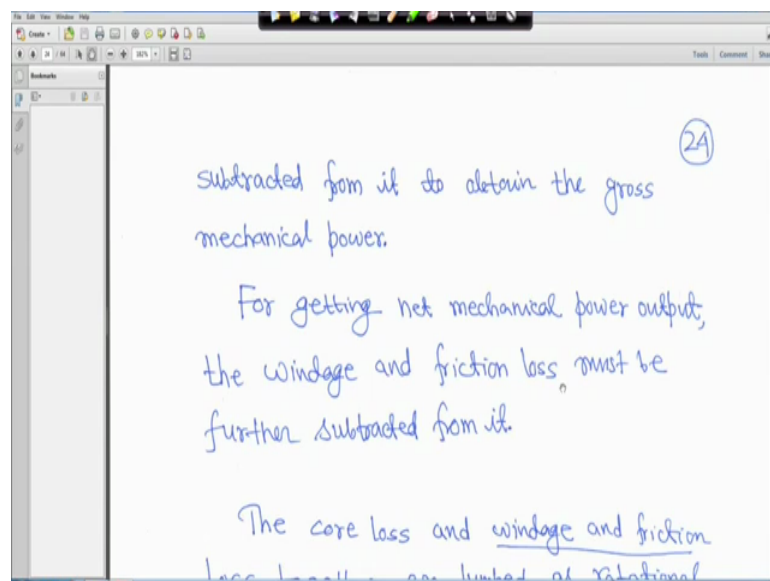 File Edit View Window Help
Create
24 / 64
182%
Tools Comment Sha
Bookmarks
24
subtracted from it to obtain the gross
mechanical power.
For getting net mechanical power output,
the windage and friction loss must be
further subtracted from it.
The core loss and windage and friction
loss are lumped as rotational